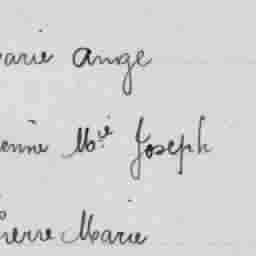 arie Ange
enne Mie Joseph
Pierre Marie